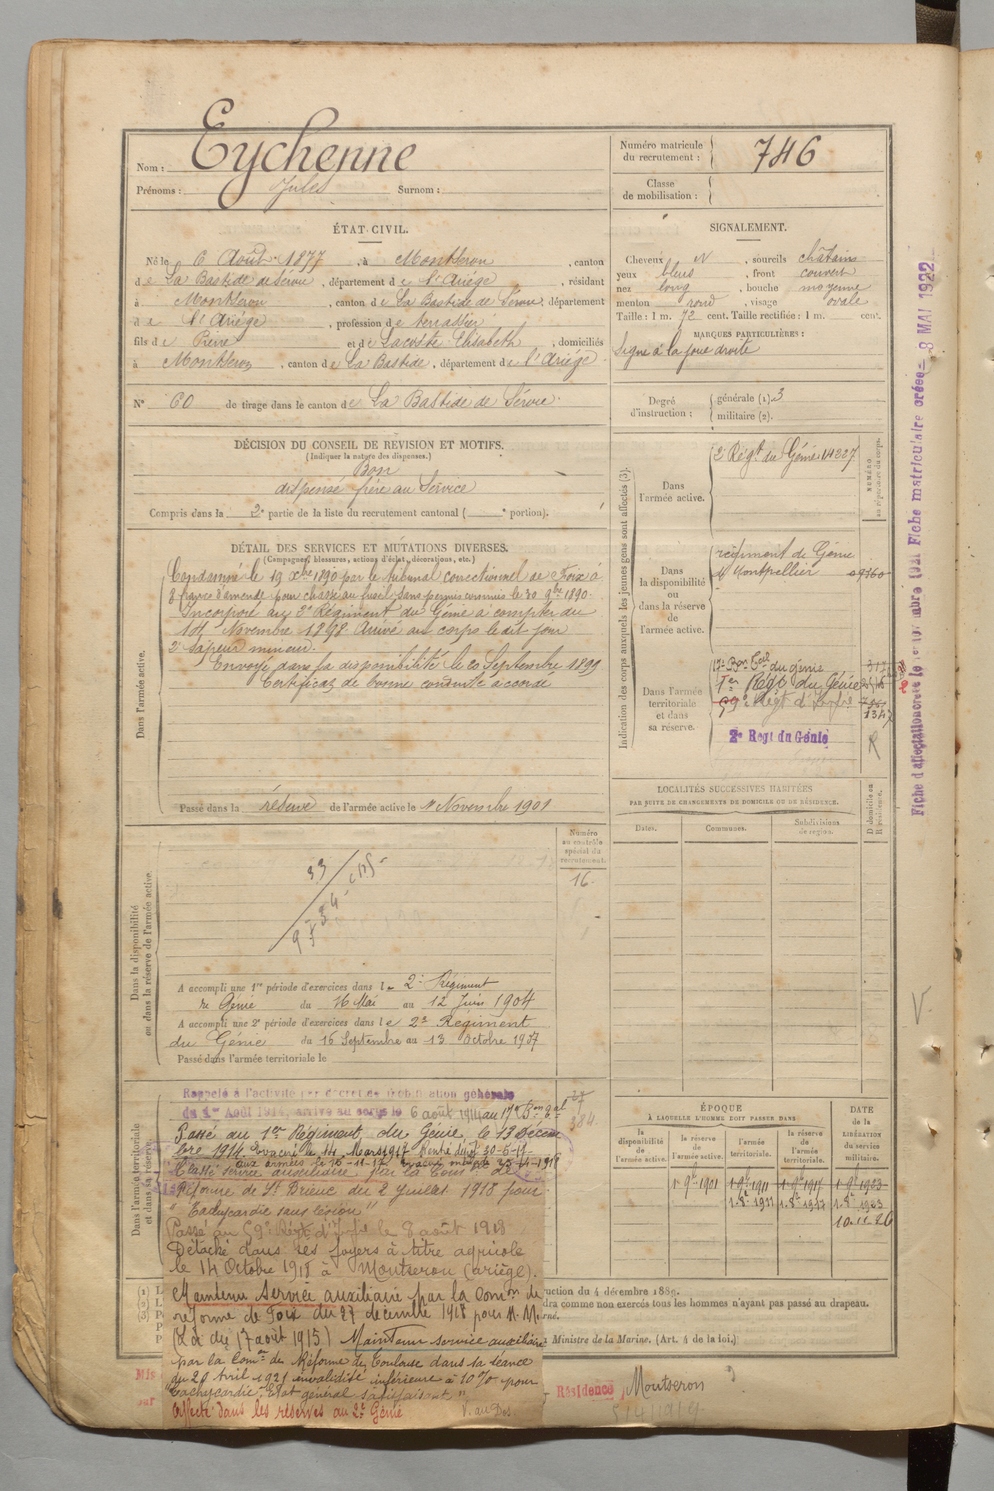 Nom : Eychenne
Prénoms : Jules Surnom :
Numéro matricule du recrutement : 746
Classe de mobilisation :
ÉTAT CIVIL.
Né le 6 Août 1877, à Montseron, canton
de La Bastide de Sérou, département de l'Ariége, résidant
à Montseron, canton de La Bastide de Sérou, département
de l'Ariége, profession de terrassier
fils de Pierre et de Lacoste Elisabeth, domiciliés
à Montseron, canton de La Bastide, département de l'Ariége
N° 60 de tirage dans le canton de La Bastide de Sérou.
SIGNALEMENT.
Cheveux N, sourcils châtains
yeux bleus, front couvert
nez long, bouche moyenne
menton rond, visage ovale
Taille : 1 m. 72 cent. Taille rectifiée : 1 m. cent.
MARQUES PARTICULIÈRES :
Signe à la joue droite
Degré d'instruction : générale (1). 3
militaire (2).
DÉCISION DU CONSEIL DE REVISION ET MOTIFS.
(Indiquer la nature des dispenses.)
Bon
dispensé frère au Service
Compris dans la 2e partie de la liste du recrutement cantonal ( e portion).
DÉTAIL DES SERVICES ET MUTATIONS DIVERSES.
(Campagnes, blessures, actions d'éclat, décorations, etc.)
Dans l'armée active.
Condamné le 19 Xbre 1890 par le tribunal correctionnel de Foix à
francs d'amende pour chasse au fusil sans permis commis le 30 9bre 1890.
Incorporé au 2e Régiment du Génie à compter du
14 Novembre 1898 Arrivé au corps le dit jour
2e sapeur mineur.
Envoyé dans la disponibilité le 20 Septembre 1899
Certificat de bonne conduite accordé
Passé dans la réserve de l'armée active le 1er Novembre 1901
Indication des corps auxquels les jeunes gens sont affectés (3).
NUMÉRO au répertoire du corps.
Dans l'armée active.
2e Régt du Génie 14227
Dans la disponibilité ou dans la réserve de l'armée active.
régiment de Génie
Montpellier 09360
Dans l'armée territoriale et dans sa réserve.
17e Bon Cal du génie
1er Régt du Génie
59e Régt d'Infrie
1347
2e Regt du Génie
R
LOCALITÉS SUCCESSIVES HABITÉES
PAR SUITE DE CHANGEMENTS DE DOMICILE OU DE RÉSIDENCE.
Dates. Communes. Subdivisions de région. D domicile ou R résidence.
Dans la disponibilité ou dans la réserve de l'armée active.
Numéro au contrôle spécial du recrutement.
16
A accompli une 1re période d'exercices dans le 2e Régiment
de Génie du 16 Mai au 12 Juin 1904
A accompli une 2e période d'exercices dans le 2e Régiment
du Génie du 16 Septembre au 13 Octobre 1907
Passé dans l'armée territoriale le
Dans l'armée territoriale et dans sa réserve.
384
Rappelé à l'activité par décret de mobilisation générale
du 1er Août 1914, arrivé au corps le 6 août 1914 au 17e Bon Cal
Passé au 1er Régiment du Génie le 13 Décem
bre 1914. Evacué le 14 Mars 1917 Rentré dépôt 30-5-17
Aux armées le 15-11-17 Evacué malade 23-4-1918
Classé service auxiliaire par la Comon de
Réforme de St Brieuc du 2 Juillet 1918 pour
"Tachycardie sans lésion"
Passé au 59e Régt d'Infie le 8 août 1918
Détaché dans ses foyers à titre agricole
le 14 Octobre 1918 à Montseron (ariège).
Maintenu Service auxiliaire par la Comon de
réforme de Foix du 27 décembre 1918 pour
(Loi du 17 août 1915) Maintenu service auxiliaire
par la Comon de Réforme de Toulouse dans sa séance
du 29 Avril 1921 invalidité inférieure à 10 % pour
"Tachycardie. Etat général satisfaisant."
Affecté dans les réserves au 2e Génie
V. au Dos
ÉPOQUE
À LAQUELLE L'HOMME DOIT PASSER DANS
la disponibilité de l'armée active. la réserve de l'armée active. l'armée territoriale. la réserve de l'armée territoriale.
DATE de la LIBÉRATION du service militaire.
1er 9bre 1901 1er 9bre 1911 1er 9bre 1917 1er 9bre 1923
1.8bre 1911 1.8bre 1917 1.8bre 1923
10.11.26
ruction du 4 décembre 1889.
dra comme non exercés tous les hommes n'ayant pas passé au drapeau.
Ministre de la Marine. (Art. 4 de la loi.)
Résidence Montseron
5/4/1919
Fiche matriculaire créée 8 MAI 1922